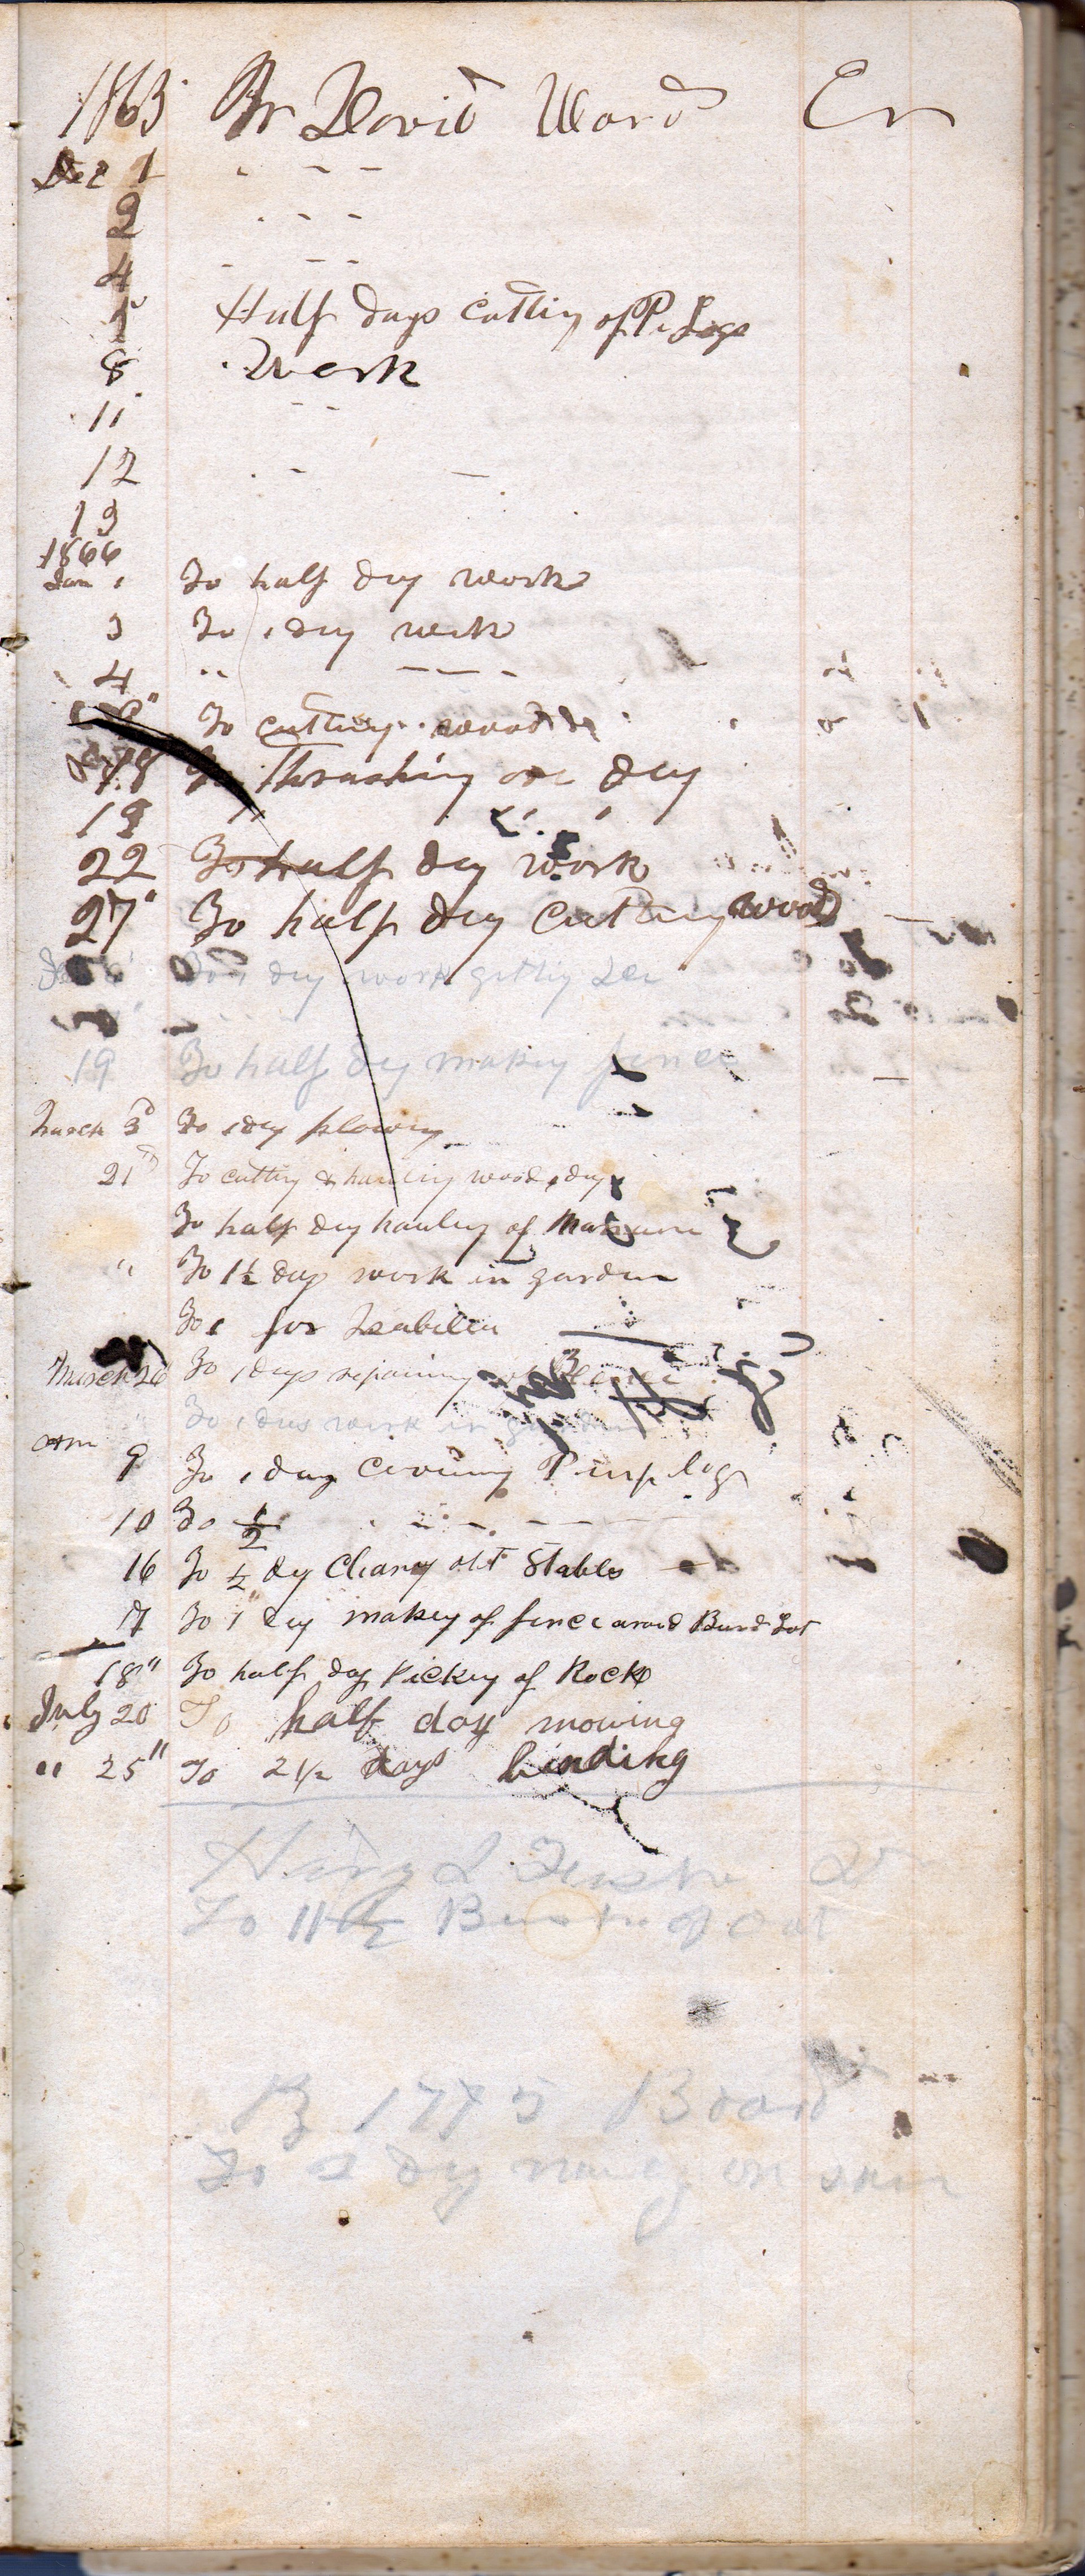 1865 David Ward Cr
Dec 1 " - -
2 " - -
4 - - -
5 Half days cutting of Logs
8 Work
11 - -
12 " - -
13
1866
Jan 1 To half day work
3 To 1 day work
4 " - - -
To cutting wood
18 To Thrashing one day
19 " " "
22 To half day work
27" To half day Cutting wood
day work getting
19 To half day making fence
March 3d To 1 day plowing
21 To cutting & hauling wood 1 day
To half day hauling of Manure
" To 1½ days work in garden
To 1 for Isabella
March 26 To 1 days repairing of fence
To 1 days work in garden
9 To 1 day Pump logs
10 To ½ - - - - -
16 To ½ day Cleang out Stables
17 To 1 day making of fence around Lot
18" To half day Picking of Rock
July 20 To half day mowing
" 25" To 2 1/2 days binding
To of Oat
Board
To day on